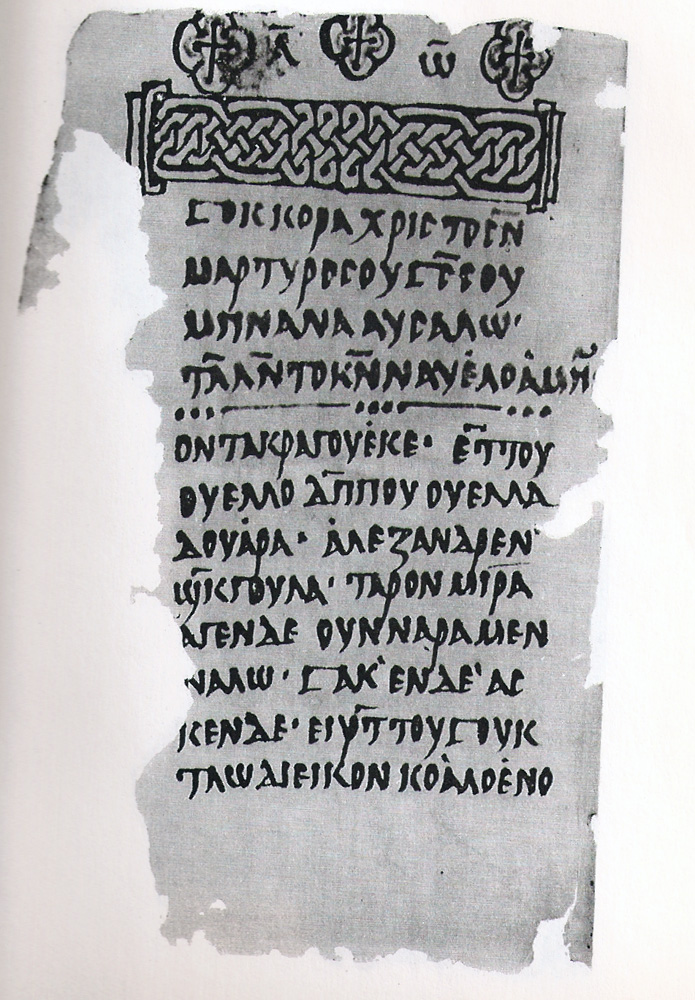 ⳟⲟⲕⲕⲟⲣⲁ ⲭⲣⲓⲥⲧⲟⲥⲛ̄
ⲙⲁⲣⲧⲩⲣⲟⲥⲟⲩ ⳟⲥ̄ⲥⲟⲩ
ⲙⲏⲛⲁⲛⲁ ⲁⲩⲥⲁⲗⲱ·
ⲧⲗ̄ⲗⲛ̄ ⲧⲟⲕⲛ̄ⲛⲁⲩⲉ̀ⲗⲟ ⲁ̀ⲙⲏⲛ
ⲟⲛ ⲧⲁⲕⲣⲁⲅⲟⲩⲉ̀ⲕⲉ· ⲉⲧ̄ⲧⲟⲩ
ⲟⲩⲉⲗⲗⲟ ⲇⲡ̄ⲡⲟⲩ ⲟⲩⲉⲗⲗⲁ
ⲇⲟⲩⲁ̀ⲣⲁ· ⲁ̀ⲗⲉⲝⲁⲛⲇⲣⲉⲛ
ϣⲓ̈ⲕⲅⲟⲩⲗⲁ· ⲧⲁⲣⲟⲛ ⲙⲓⲣ̄ⲣⲁ
ⲁⲅⲉⲛⲇⲉ ⲟⲩⲛⲛⲁⲣⲁⲙⲉⲛ
ⲛⲁⲗⲱ· ⳟⲁⲕ̀ⲉⲛⲇⲉ̀ ⲁⲥ
ⲕⲉⲛⲇⲉ· ⲉⲓⲣⲧ̄ⲧⲟⲩⳟⲟⲩⲕ
ⲧⲗⲱⲇⲓⲉⲓⲕⲟⲛ ⲕⲟⲁ̀ⲗⲟⲉ̀ⲛⲟ